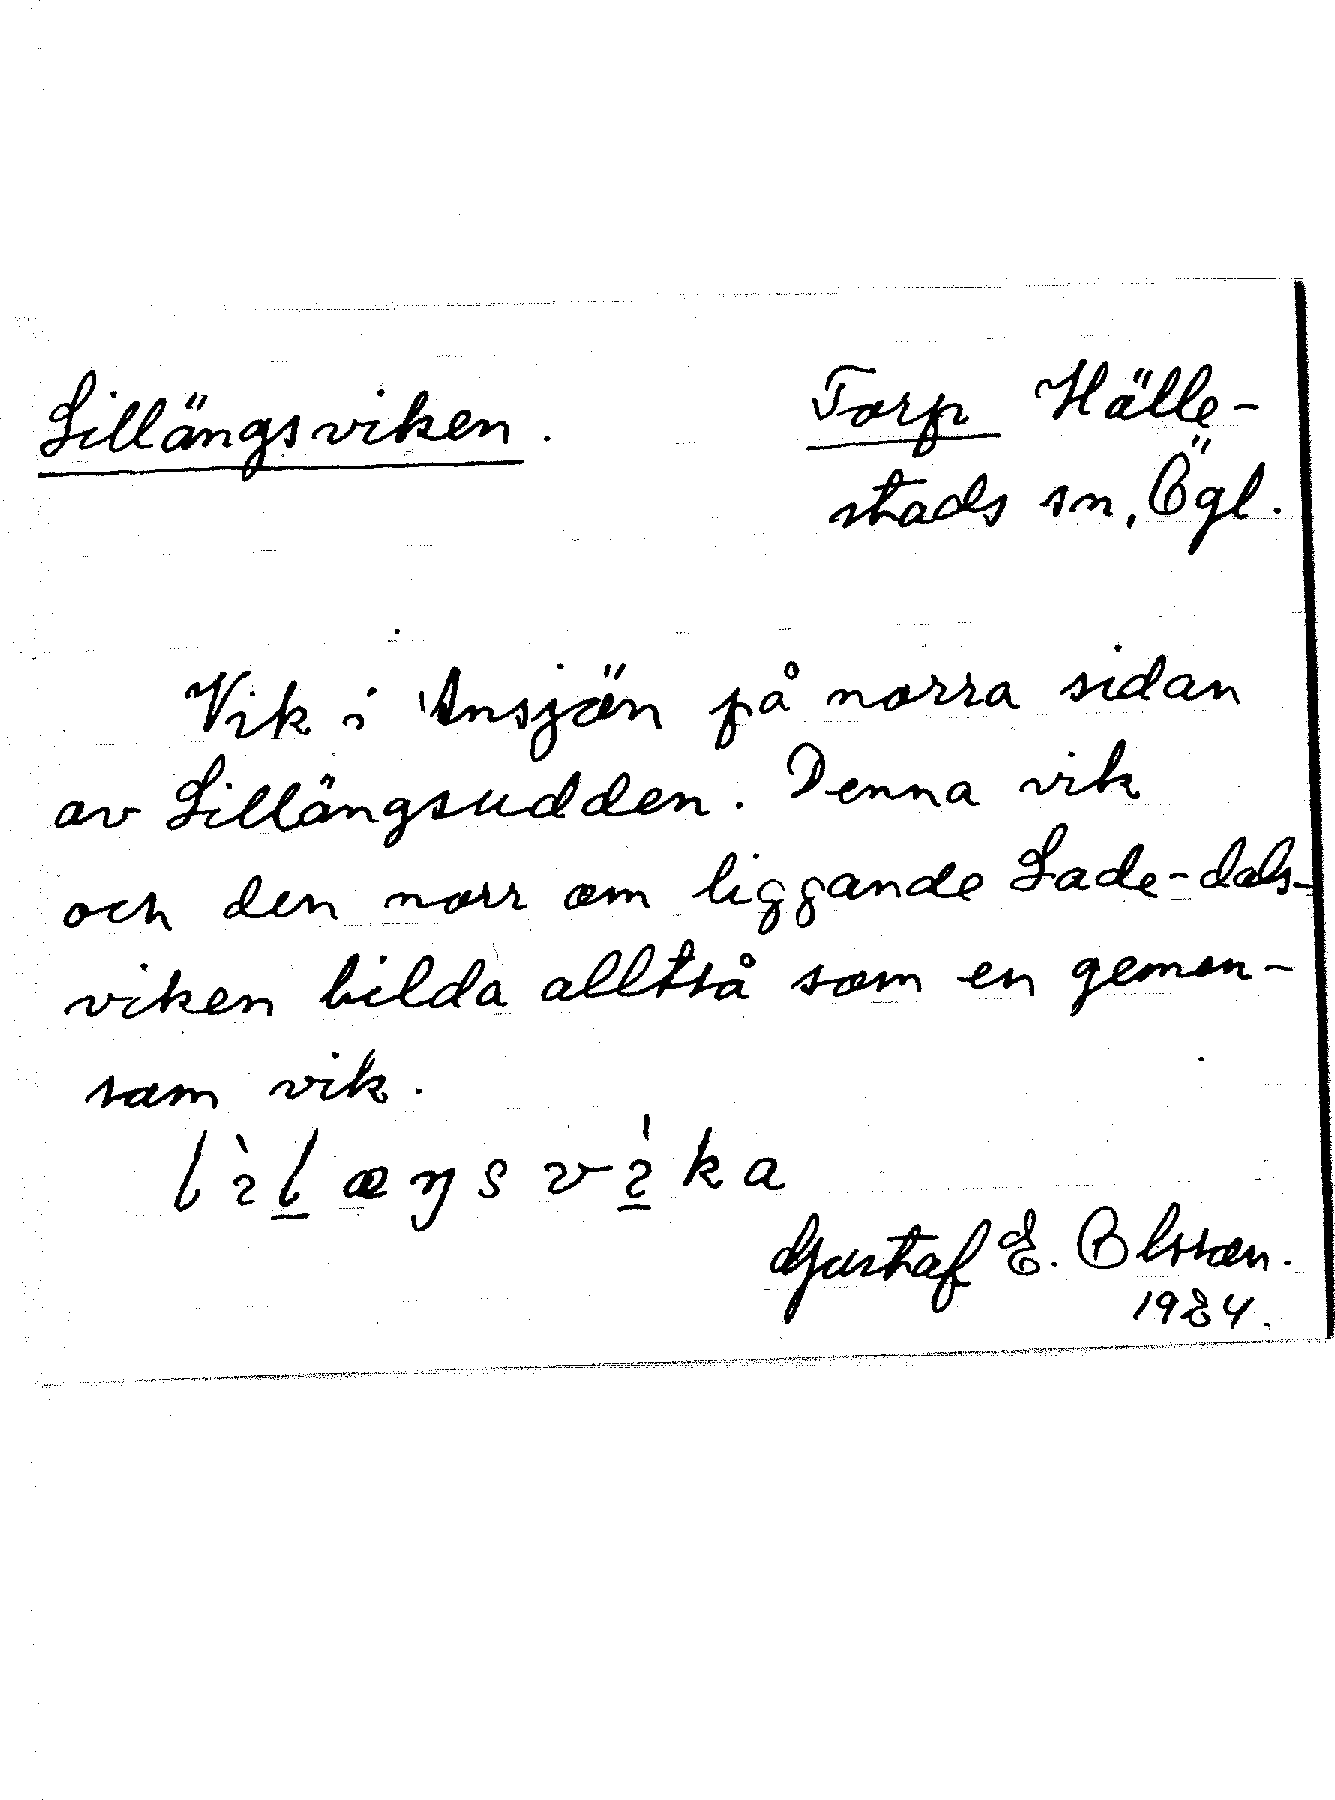 Lillängsviken. Torp Hälle-
stads sn, Ögl.
Vik i Ånsjön på norra sidan
av Lillängsudden. Denna vik
och den norr om liggande Lade-dals-
viken bilda alltså som en gemen-
sam vik.
lìlæŋsvika
Gustaf E. Olsson.
1934.